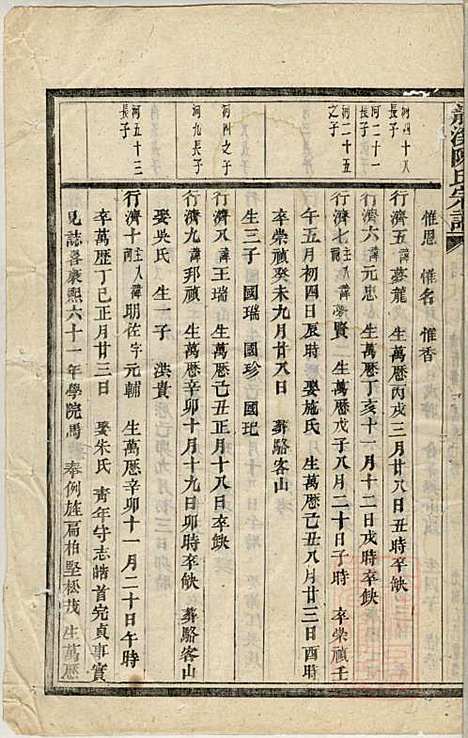 龍溪陳氏宗譜
惟恩 惟名 惟香
河四十八長子
行濟五 諱夢龍 生萬歷丙戌三月廿八日丑時 卒缺
河二十一長子
行濟六 諱元忠 生萬歷丁亥十一月十二日戌時 卒缺
河二十五之子
行濟七 諱 賢 生萬歷戊子八月二十日子時 卒崇禎壬
午五月初四日辰時 娶施氏 生萬歷己丑八月廿三日酉時
卒崇禎癸未九月廿八日 葬駱客山
生三子 國瑞 國珍 國玘
河四之子
行濟八 諱王瑞 生萬歷己丑正月十八日卒缺
河九長子
行濟九 諱邦禎 生萬歷辛卯十月十九日卯時卒缺 葬駱客山
娶吳氏 生一子 洪貴
河五十三長子
行濟十 主入諱明佐字元輔 生萬歷辛卯十一月二十日午時
卒萬歷丁巳正月廿三日 娶朱氏 青年守志皓首完貞事實
見誌喜康熙六十一年學院馬 奉例旌扁柏堅松茂 生萬歷